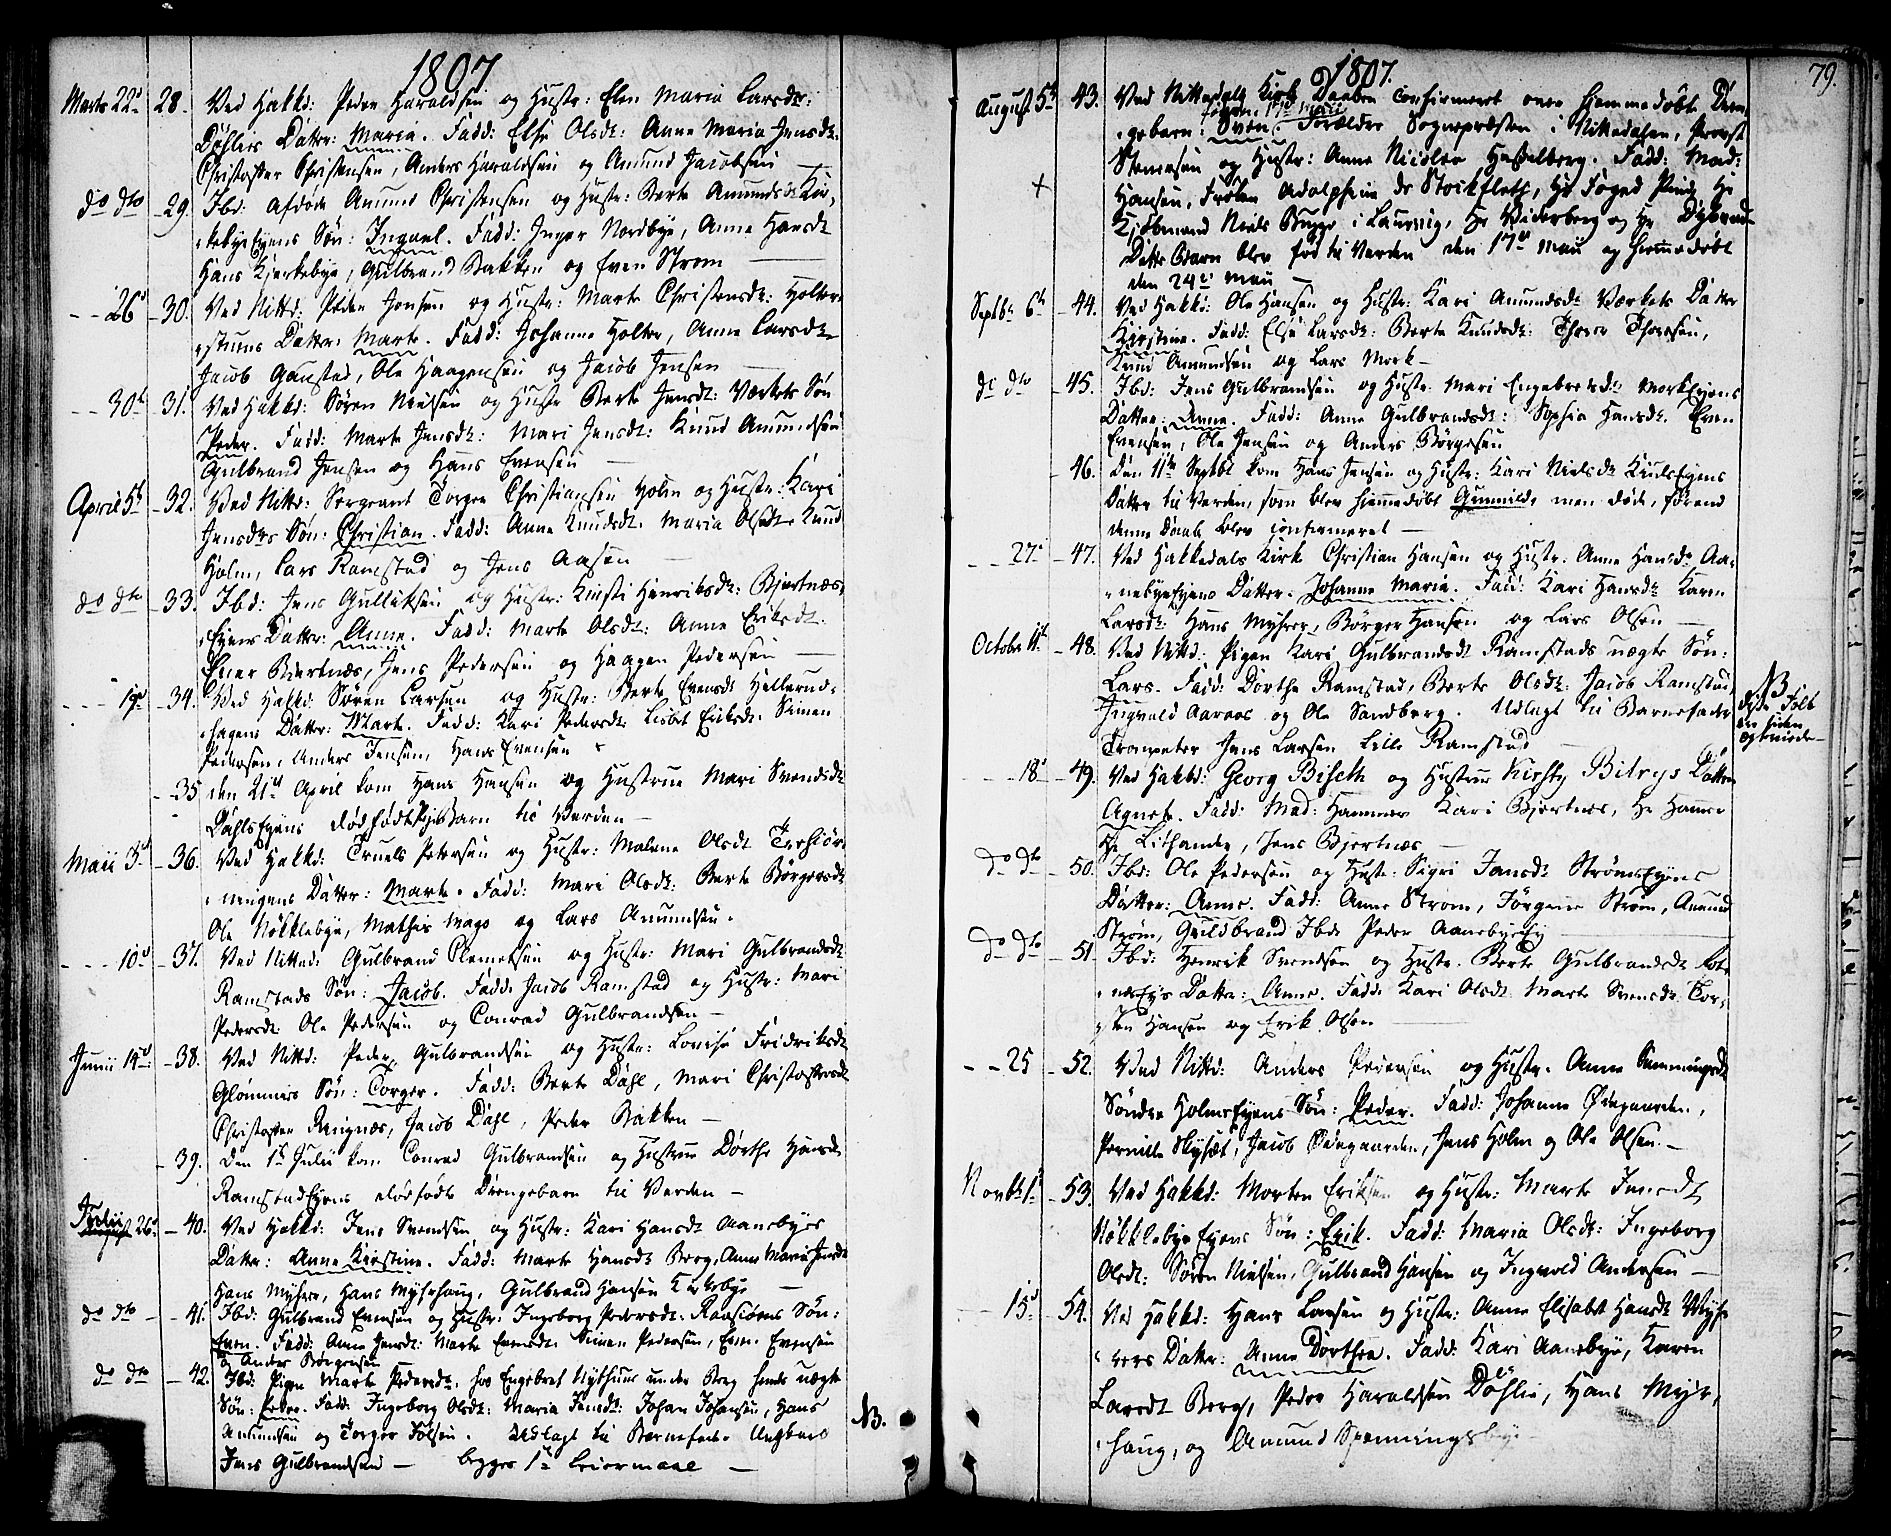 1807
Marts 22d 28. Ved Hakkd: Peder Haraldsen og Hustr: Elen Maria Larsdr:
Døhlies Datter: Maria. Fadd: Else Olsdt: Anne Maria Jensdt:
Christopher Christensen, Anders Haraldsen og Amund Jacobsen —
do dto - 29. Ibd: afdøde Amund Christensen og Hustr: Berte Amundsdt Kir,
kebyeEyens Søn: Ingvel. Fadd: Inger Nordbye, Anne Hansdt
Hans Kjerkebye, Gulbrand Bakken og Even Strøm —
- - 26d - 30. Ved Nittd: Peder Jonsen og Hustr: Marte Christensdt: Holter
stuens Datter: Marte. Fadd: Johanne Holter, Anne Larsdt
Jacob Gaustad, Ole Haagensen og Jacob Jensen —
- - 30t - 31. Ved Hakkd: Søren Nielsen og Hustr Berte Jensdt: Værkets Søn
Peder. Fadd: Marte Jensdt: Mari Jensdt: Knud Amundsen
Gulbrand Jensen og Hans Evensen —
April 5t - 32. Ved Nittd: Sergeant Torger Christiansen Holm og Hustr: Kari
Jensdrs Søn: Christian. Fadd: Anne Knudsdt. Maria Olsdt. Knud
Holm, Lars Ramstad og Jens Aasen —
do dto - 33. Ibd: Jens Gulliksen og Hustr: Kirsti Henriksdt: Bjertnæs,
Eyens Datter: Anne. Fadd: Marte Olsdt: Anne Eriksdt.
Peder Bjertnæs, Jens Pedersen og Haagen Pedersen —
- - - 19d - 34. Ved Hakkd: Søren Larsen og Hustr: Berte Evensdt Hellerud,
hagens Datter: Marte. Fadd: Kari Pedersdt: Lisbet Eriksdt. Simen
Pedersen, Anders Jensen, Hans Evensen
- 35 den 21de April kom Hans Hansen og Hustrue Mari Svendsdt
DahlsEyens dødfødte PigeBarn til Verden —
Maii 3d - 36. Ved Hakkd: Truels Petersen og Hustr: Malene Olsdt
ningens Datter: Marte. Fadd: Mari Olsdt: Berte Børgersdt
Ole Nøkklebye, Mathis Mago og Lars Amundsen.
- - - 10d - 37. Ved Nitted: Gulbrand Clemetsen og Hustr: Mari Gulbrandsdt
Ramstads Søn: Jacob. Fadd: Jacob Ramstad og Hustr: Mari
Pedersdt: Ole Pedersen og Conrad Gulbrandsen —
Junii 14d - 38. Ved Nittd: Peder Gulbrandsen og Hustr: Lovise Fridriksdt
Glommens Søn: Torger. Fadd: Berte Dahl, Mari Christophersdt
Christopher Rengnæs, Jacob Dahl, Peder Bakken —
- 39. Den 1te Julii kom Conrad Gulbrandsen og Hustrue Dorthe Hansdt
RamstadEyens dødfødte Drengebarn til Verden —
Julii 26d - 40. Ved Hakkd: Jens Svendsen og Hustr: Kari Hansdt Aanebyes
Datter: Anne Kirstine. Fadd: Marte Hansdt Berg, Anne Marie Jensdt
Hans Myhrer, Hans Myhrhaug, Gulbrand Hansen Kirkebye —
do dto - - 41. Ibd: Gulbrand Evensen og Hustr: Ingeborg Pedersdt: Søn:
Even. Fadd: Anne Jensdt: Marte Evensdt. Simen Pedersen, Even Evensen
og Anders Børgersen
do dto - 42. Ibd: Pigen Marte Pedersdt. hos Engebret Nythuus under Berg hendes uægte
Søn: Peder. Fadd: Ingeborg Olsdt: Maria Jensdt: Johan Johansen, Hans
Amundsen og Torger Colsen. Udlagt til Barnefader Ungkarl NB.
Jens Gulbrandsen — begges 1te Leiermaal —
1807. 79.
August 5t 43. Ved Nittedals Kirke Daaben confirmeret over hiemmedøbt Dren,
gebarn: Sven. Forældre Sognepræsten i Nittedalen, Provst
Stenersen og Hustr: Anne Nicolea Hesselberg. Fadd: Mad:
+ Hansen, Frøken Adolphine de Stockfleth, Hr Foged Hr
Kjøbmand Niels Bugge i Laurvig, Hr Wideberg og Hr
Dette Barn blev fød til Verden den 17de Maii og hiemmedøbt
den 24de Maii —
Septbr 6t - 44. Ved Hakkd: Ole Hansen og Hustr: Kari Amundsdt Værkets Datter
Kirstine. Fadd: Else Larsdt: Berte Knudsdt: Thore Thoresen,
Knud Amundsen og Lars Mork —
do dto - 45. Ibd: Jens Gulbrandsen og Hustr: Mari Engebretsdt MorkEyens
Datter: Anne. Fadd: Anne Gulbrandsdt: Sophia Hansdt. Even
Evensen, Ole Jensen og Anders Børgesen
- 46. Den 11te Septbr kom Hans Jensen og Hustr: Kari Nielsdt KiulsEyens
Datter til Verden, som blev hiemmedøbt Gunnild, men døde, førend
denne Daab blev confirmeret —
- - 27d - 47. Ved Hakkedals Kirke Christian Hansen og Hustr. Anne Hansdt Aa,
nebyeEyens Datter: Johanne Maria. Fadd: Kari Hansdt: Karen
Larsdt: Hans Myhrer, Børger Hansen og Lars Olsen —
October 11t - 48. Ved Nittd: Pigen Kari Gulbrandsdt Ramstads uægte Søn:
Lars. Fadd: Dorthe Ramstad, Berte Olsdt: Jacob Ramstad, NB
Ingvald Aaraas og Ole Sandberg. Udlagt til Barnefader disse Folk
Trompeter Jens Larsen Lille Ramstad — ere siden
- - 18d - 49. Ved Hakkd: Georg Biseth og Hustrue Kirsty Bitrys Datter
Agnet. Fadd: Mad: Hammer Kari Bjertnes, Hr Hamer
Hr Lithander, Jens Bjertnæs —
do dto - 50. Ibd: Ole Pedersen og Hustr: Sigri Jensdt StrømsEyens
Datter: Anne. Fadd: Anne Strøm, Jørgine Strøm, Amund
Strøm, Guldbrand Ibd: Peder AanebyeEy —
do dto - 51. Ibd: Henrik Svendsen og Hustr. Berte Gulbrandsdt
næsEys Datter: Anne. Fadd: Kari Olsdt. Marte Svensdt. Tor,
sten Hansen og Erik Olsen —
- - 25 - 52. Ved Nittd: Anders Pedersen og Hustr. Anne Simensdt
Søndre HolmsEyens Søn: Peder. Fadd: Johanne Ødegaarden,
Pernille Skyset, Jacob Ødegaarden, Jens Holm og Ole Olsen. —
Novbr 1d - 53. Ved Hakkd: Morten Eriksen og Hustr: Marte Jensdt
NøkklebyeEyens Søn: Erik. Fadd: Maria Olsdt: Ingeborg
Olsdt: Søren Nielsen, Gulbrand Hansen og Ingvold Andersen —
- - 15d - 54. Ved Hakkd: Hans Larsen og Hustr: Anne Elisabet Hansdt Myh,
rers Datter: Anne Dorthea. Fadd: Kari Aanebye, Karen
Larsdt Berg, Peder Haraldsen Døhlie, Hans Myhr,
haug, og Amund Spenningsbye